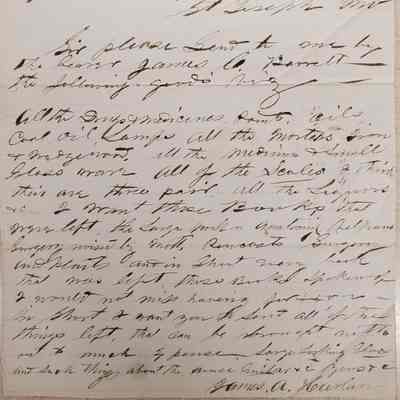 St Joseph Mo
Sir please Send to me by
the bearer James C. Barrett
the following goods Viz
All the Drugs & medicines, Paint, Oils,
Coal Oil, Lamps all the Mortars Iron
& Wedgewood, all the medium & Small
Glass ware all of the Scales I think
thir are three pair all the Liquors
&c I want those Books that
were left, the Large work on
Surgery by Smith Pancoasts Surgery
and in Short every book
that was left those Books Spoken of
I would not miss having for
In Short I want you to Send all of the
things left, that can be brought
out to much Expense Large Looking Glass
and Such things about the
James. A.